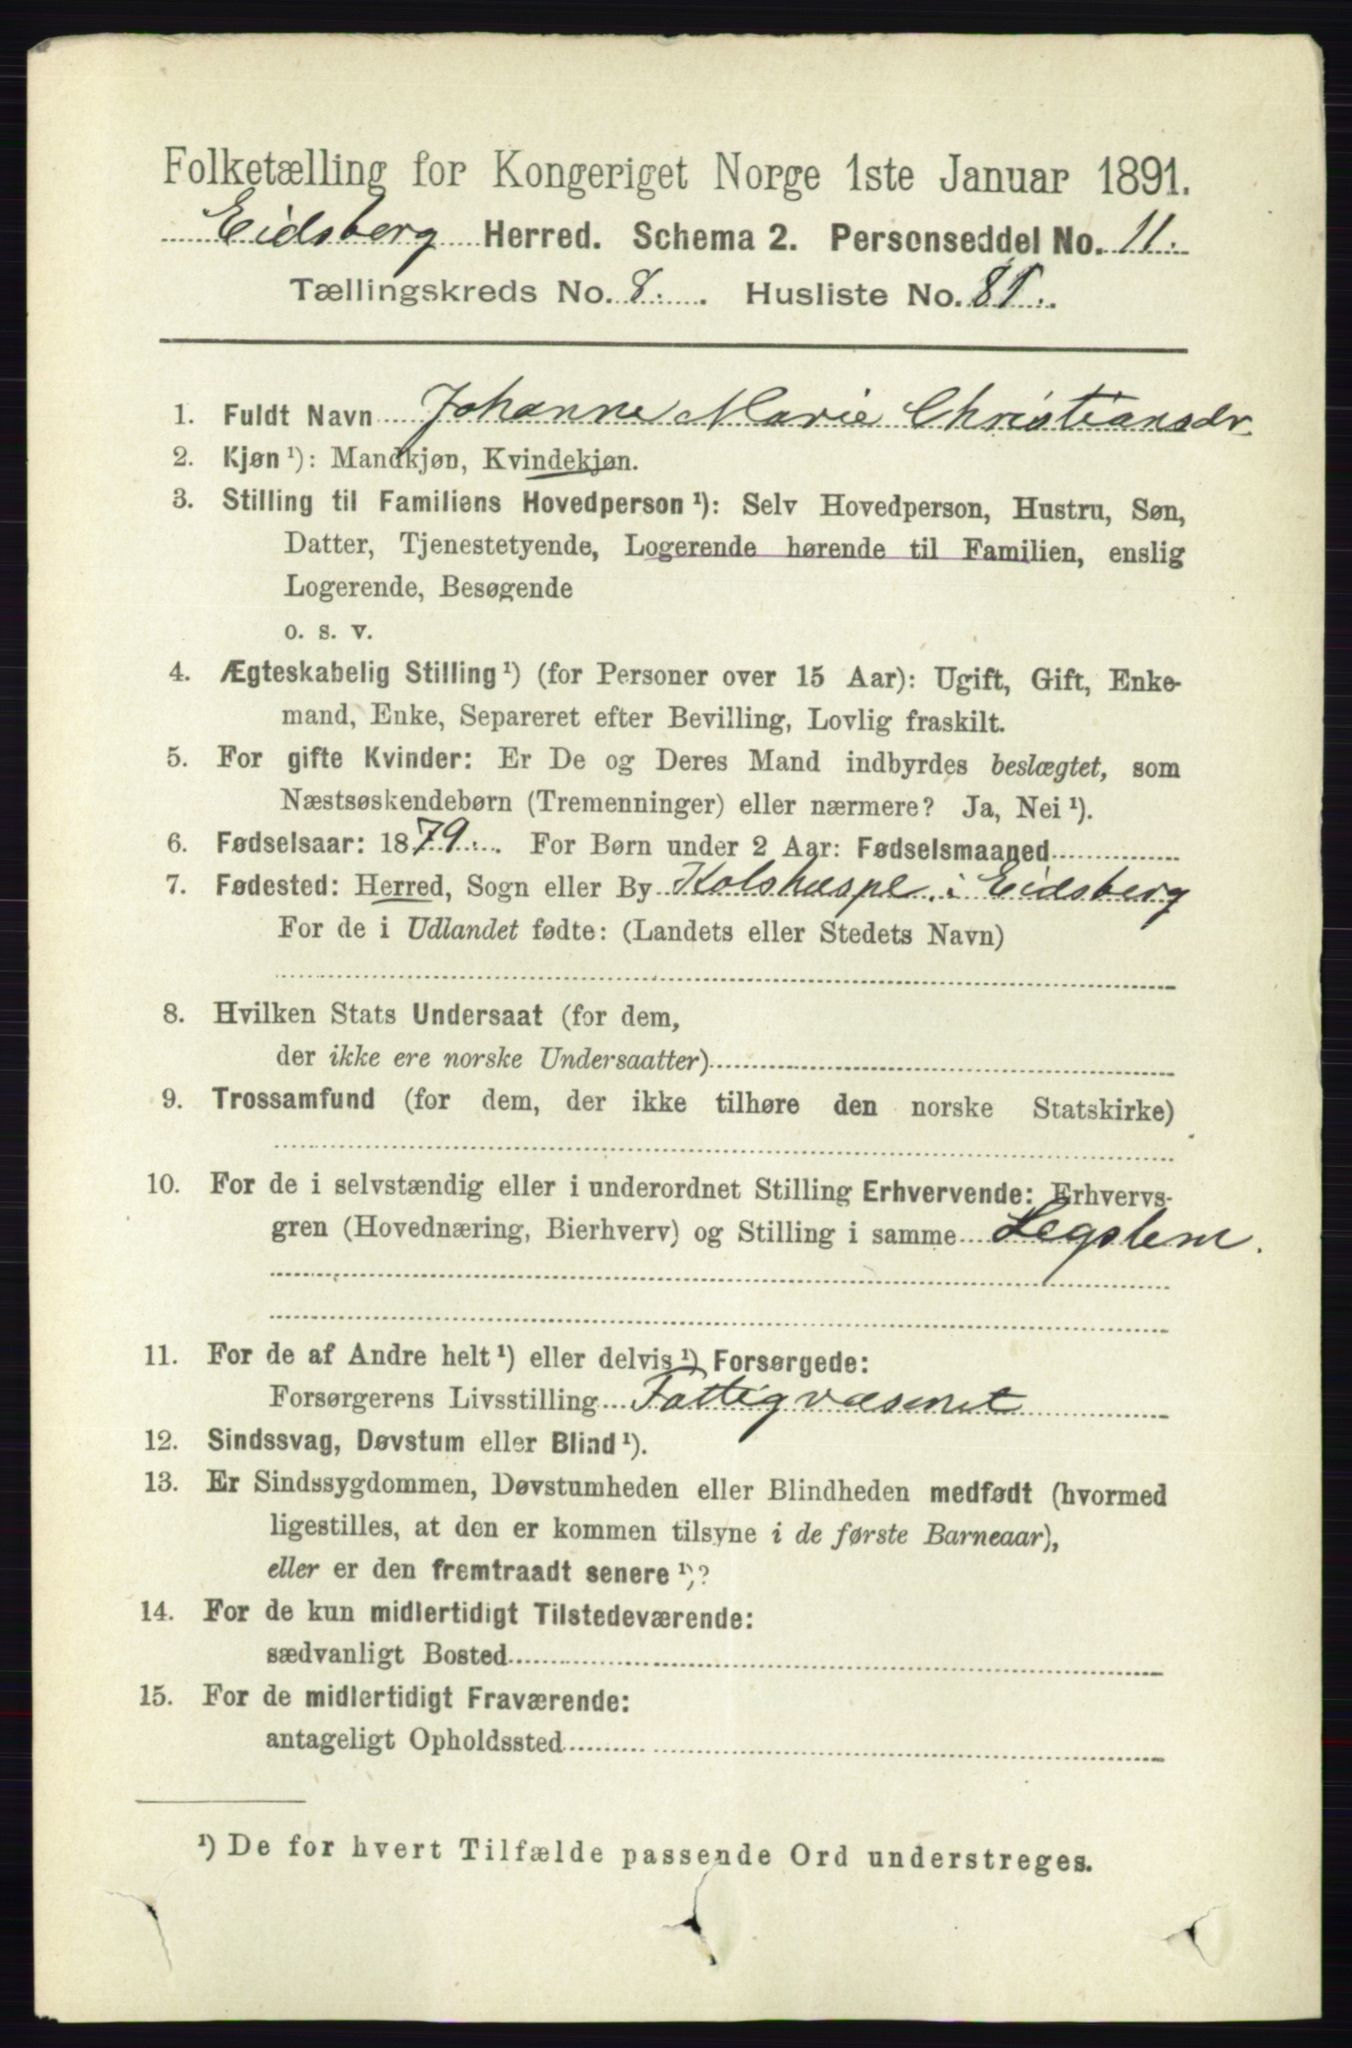 Folketælling for Kongeriget Norge 1ste Januar 1891.
Eidsberg Herred. Schema 2. Personseddel No. 11.
Tællingskreds No. 8. Husliste No.
1. Fuldt Navn Johanne Marie Christiansdr
2. Kjøn ¹): Mandkjøn, Kvindekjøn.
3. Stilling til Familiens Hovedperson ¹): Selv Hovedperson, Hustru, Søn,
Datter, Tjenestetyende, Logerende hørende til Familien, enslig
Logerende, Besøgende
o. s. v.
4. Ægteskabelig Stilling ¹) (for Personer over 15 Aar): Ugift, Gift, Enke-
mand, Enke, Separeret efter Bevilling, Lovlig fraskilt.
5. For gifte Kvinder: Er De og Deres Mand indbyrdes beslægtet, som
Næstsøskendebørn (Tremenninger) eller nærmere? Ja, Nei ¹).
6. Fødselsaar: 1879. For Børn under 2 Aar: Fødselsmaaned
7. Fødested: Herred, Sogn eller By i Eidsberg
For de i Udlandet fødte: (Landets eller Stedets Navn)
8. Hvilken Stats Undersaat (for dem,
der ikke ere norske Undersaatter)
9. Trossamfund (for dem, der ikke tilhøre den norske Statskirke)
10. For de i selvstændig eller i underordnet Stilling Erhvervende: Erhvervs-
gren (Hovednæring, Bierhverv) og Stilling i samme Legslem.
11. For de af Andre helt ¹) eller delvis ¹) Forsørgede:
Forsørgerens Livsstilling Fattigvæsenet
12. Sindssvag, Døvstum eller Blind ¹).
13. Er Sindssygdommen, Døvstumheden eller Blindheden medfødt (hvormed
ligestilles, at den er kommen tilsyne i de første Barneaar),
eller er den fremtraadt senere ¹)?
14. For de kun midlertidigt Tilstedeværende:
sædvanligt Bosted
15. For de midlertidigt Fraværende:
antageligt Opholdssted
¹) De for hvert Tilfælde passende Ord understreges.